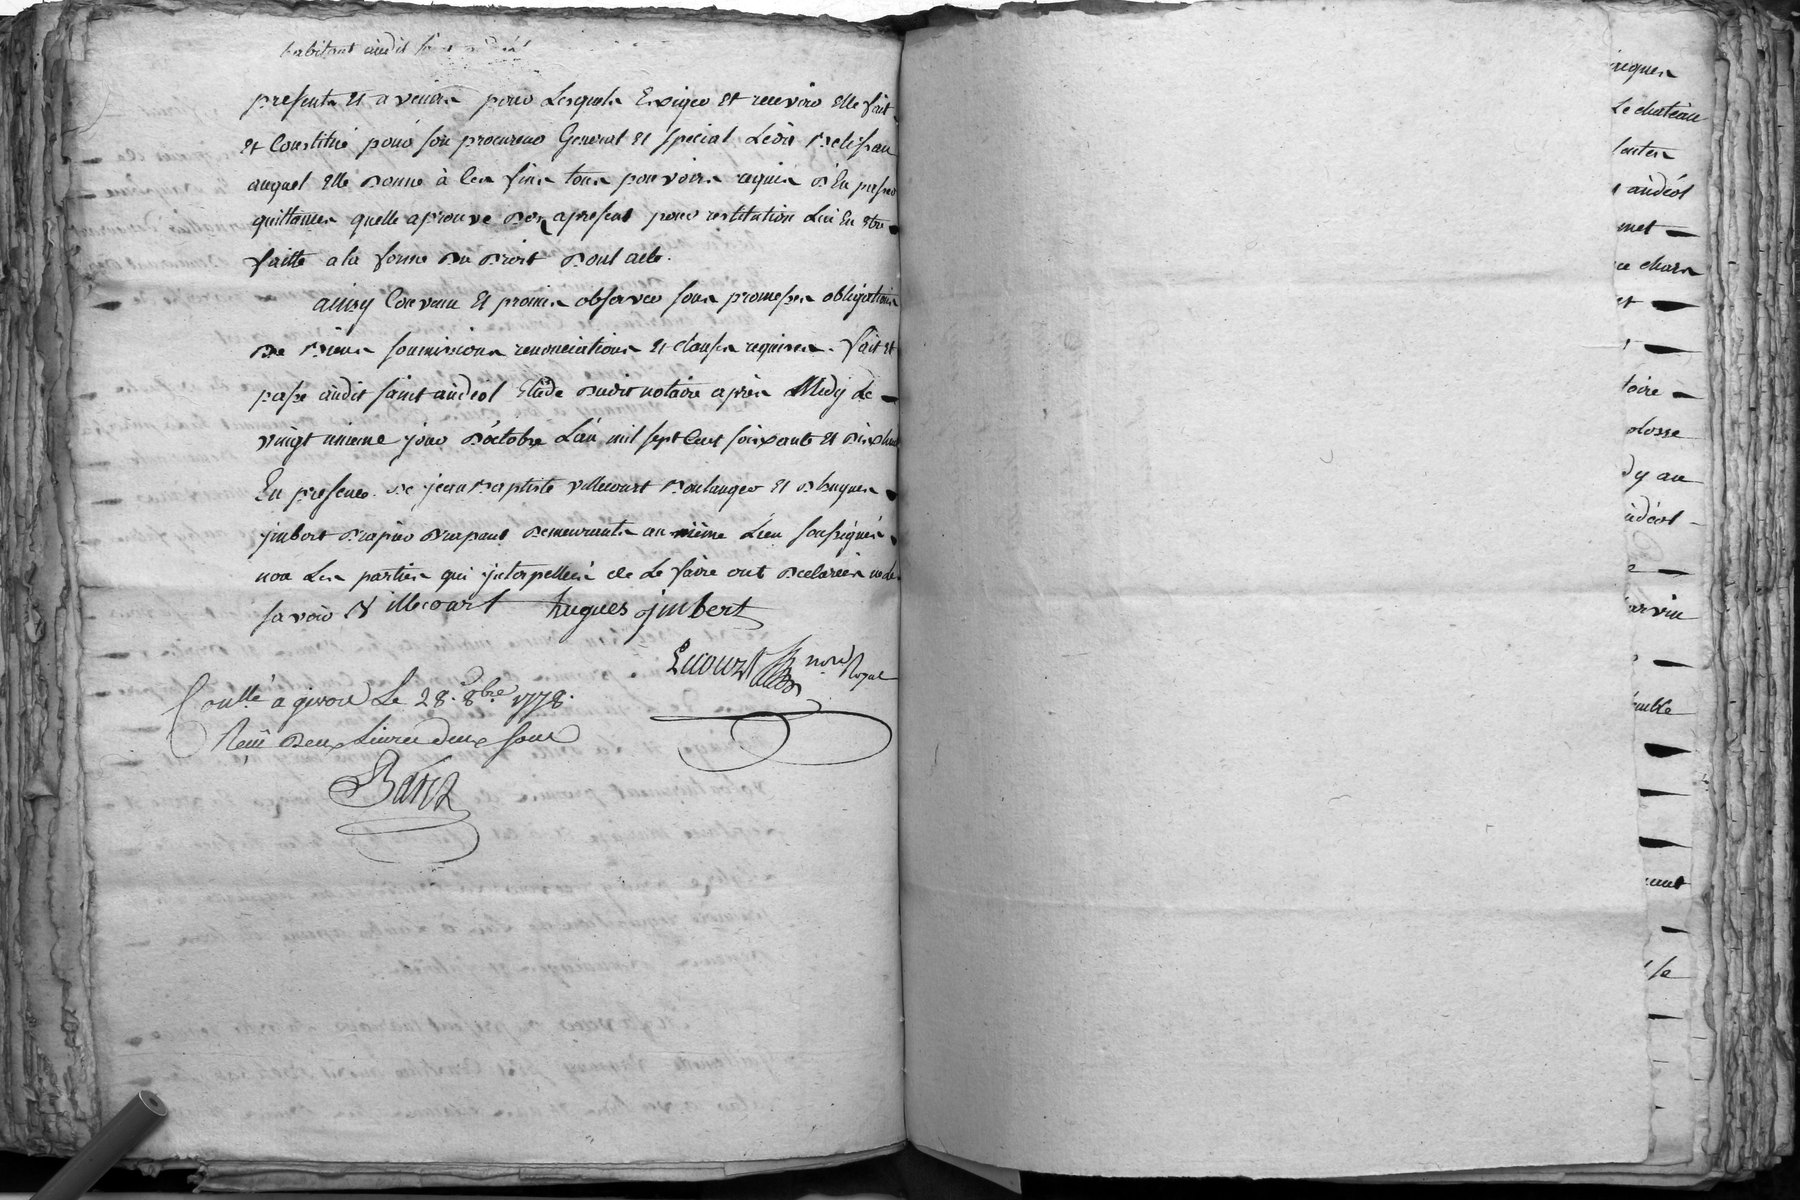 habitant audit
presents et a venir pour Lesquels Exiger et recevoir elle fait
et Constitue pour son procureur General et special Ledit Belisson
auquel elle donne à Ces fins tous pouvoirs requis d'En passer
quittances quelle aprouve des apresent pour restitution Lui En etre
faitte a la forme du droit dont acte.
ainsy Convenu et promis observer sous promesses obligations
de biens soumissions renonciations et clauses requises. fait et
passé audit saint andéol Etude dudit notaire après Midy Le
vingt unieme jour d'octobre L'an mil sept Cent soixante et dix huit
En presence de jean Baptiste villecourt Boulanger et d'hugues
jmbert drapier drapant demeurants au même Lieu soussignés
non Les parties qui jnterpellés de Le faire ont declarées ne le
savoir Villecourt hugues jmbert
Lecourt nore Royal
Conllé a givors Le 28. 8bre 1778.
Reçu deux Livres deux sous
iques
Le chateau
santes
andéol
met
ce chars
et
toire
dy au
andéol
emble
ment